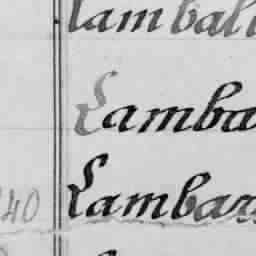 Lamball
Lamba
40 Lambar